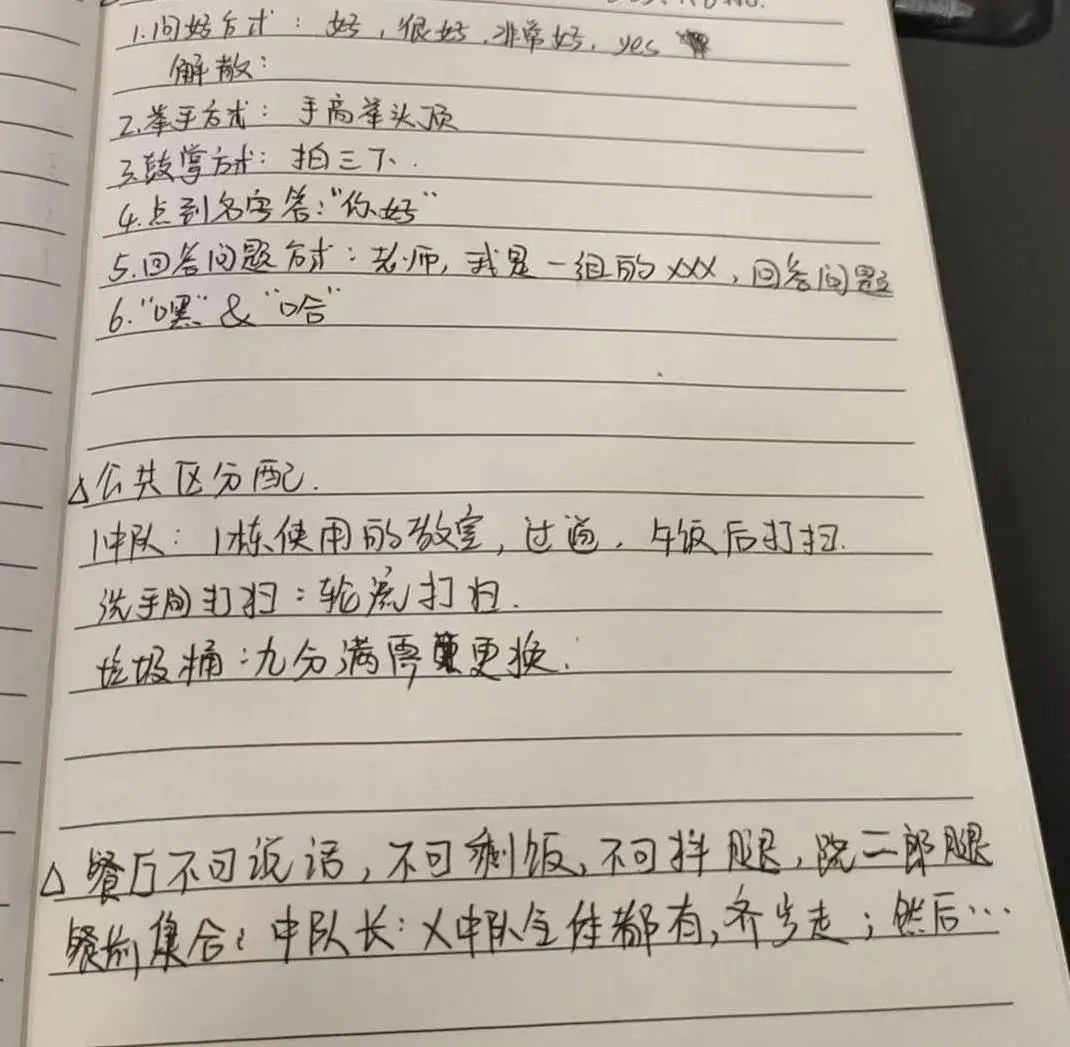 1.问好方式：好，很好，非常好，yes
解散：
2.举手方式：手高举头顶
3.鼓掌方式：拍三下.
4.点到名字答："你好"
5.回答问题方式：老师，我是一组的XXX，回答问题
6."嘿"&"哈"
△公共区分配.
1中队：1栋使用的教室，过道，午饭后打扫.
洗手间打扫：轮流打扫.
垃圾桶：九分满需更换.
△餐厅不可说话，不可剩饭，不可抖腿，二郎腿
餐前集合：中队长：X中队全体都有，齐步走；然后…